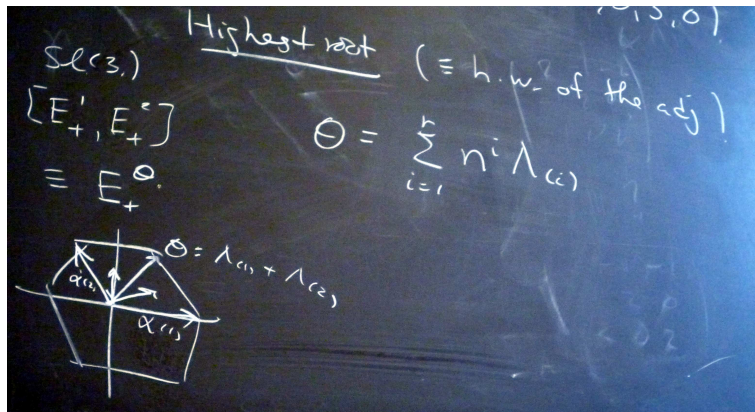 0,3,0)
Highest root (≡ h.w. of the adj)
sl(3.)
[E₊¹, E₊²]
≡ E₊^θ
θ = Σ_{i=1}^{r} nⁱ Λ₍ᵢ₎
θ = Λ₍₁₎ + Λ₍₂₎
α₍₂₎
α₍₁₎